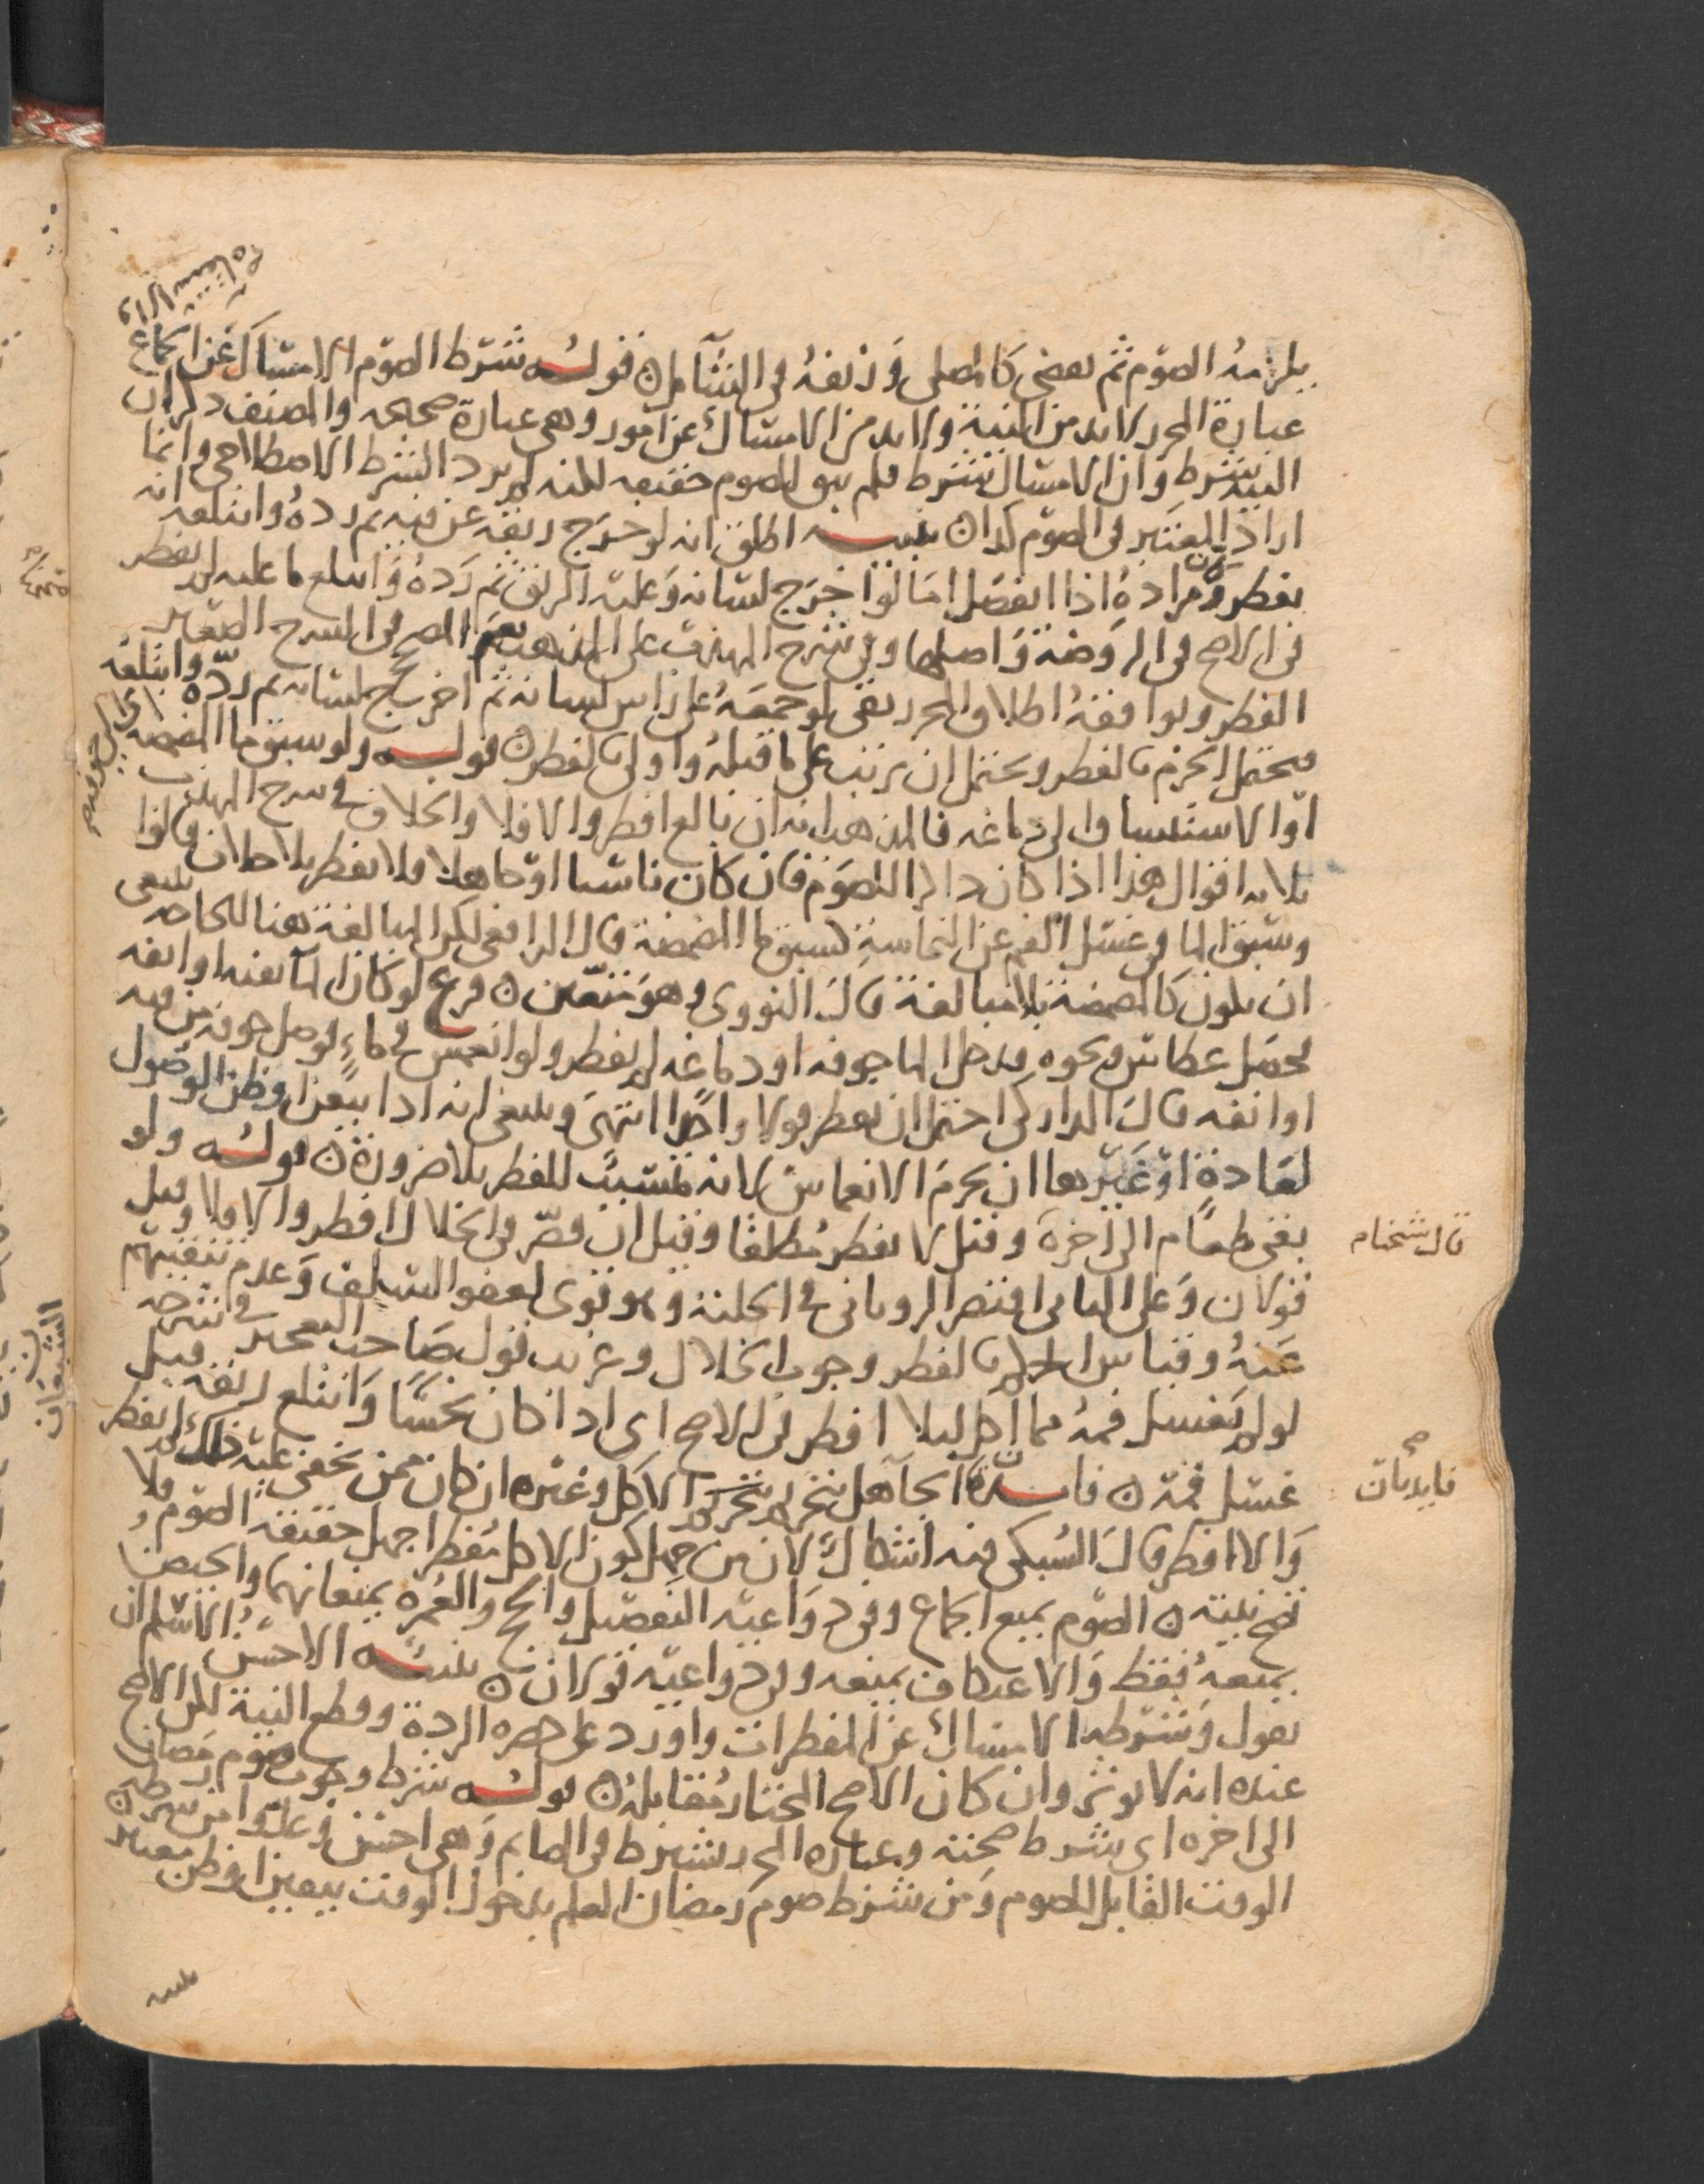 يلزمه الصوم ثم يقضى كالمصلى وزيفه فى الشامل ن قوله شرط الصوم الامساك عن الجماع
عبارة المحرر لابد من النية ولابد من الامساك عن امور وهى عبارة صحيحه والمصنف ذكر ان
النية شرط وان الامساك شرط فلم يبق للصوم حقيقه لكنه لم يرد الشرط الاصطلاحى وانما
اراد المعتبر فى الصوم كذا ن تنبيه اطلق انه لو خرج ريقه عن فيه ثم رده وابتلعه انه
يفطر ومراده اذا انفصل اما لو اخرج لسانه وعليه الريق ثم رده وابتلع ما عليه لم يفطر
فى الاصح فى الروضة واصلها وفى شرح المهذب على المذهب نعم فى الشرح الصغير
الفطر ويوافقه اطلاق المحرر بقى لو جمعه على راس لسانه ثم اخرج لسانه ثم رده وابتلعه
فيحتمل الجزم بالفطر ويحتمل ان يرتب على ما قبله واولى بالفطر ن قوله ولو سبق ما المضمضة
او الاستنشاق الى دماغه فالمذهب انه ان بالغ افطر والا فلا والخلاف فى شرح المهذب
ثلاثه اقوال هذا اذا كان ذاكرا للصوم فان كان ناسيا او جاهلا فلا يفطر بلا خلاف قالوا
وسبق الماء فى غسل الفم عن النجاسة كسبق ما المضمضة قال الرافعى لكن المبالغة هنا للحاجه ينبغى
ان تكون كالمضمضة بلا مبالغة قال النووى وهو متعين ن فرع لو كان الما بفيه او انفه
فحصل عطاس ونحوه فدخل الما جوفه او دماغه لم يفطر ولو انغمس فى ماء لوصل جوفه من فيه
او انفه قال الداركى احتمل ان يفطر قولا واحدا انتهى وينبغى انه اذا تيقن او ظن الوصول
لعادة او غيرها ان يحرم الانغماس لانه تسبب للفطر بلا ضرورة ن قوله ولو
بقى طعام الى اخره وقيل لا يفطر مطلقا وقيل ان قصر فى الخلال افطر والا فلا وقيل
قولان وعلى الثانى اقتصر الرويانى فى الحلية وهو قوى لعفو السلف وعدم تنقيبهم
عنه وقياس بالفطر وجوب الخلال وغريب قول صاحب التعجيز فى شرحه
لو لم يغسل فمه مما اكل ليلا افطر فى الاصح اى اذا كان نجسا وابتلع ريقه قبل
غسل فمه ن فايدة الجاهل بتحريم الاكل وغيره ان كان ممن يخفى عليه ذلك لم يفطر
والا افطر قال السبكى فيه اشكال لان من جهل كون الاكل مفطرا جهل حقيقة الصوم فلا
تصح نيته ن الصوم يمنع الجماع وفى دواعيه التفصيل والحج والعمرة يمنعانهما والحيض
يمنعه فقط والاعتكاف يمنعه وفى دواعيه قولان ن تنبيه الاحسن الاسلم ان
يقول وشرطه الامساك عن المفطرات واورد على حصره الردة وقطع النية لكن الاصح
عنده انه لا يوثر وان كان الاصح المختار مقابله ن قوله شرط وجوب صوم رمضان
الى اخره اى شرط صحته وعبارة المحرر يشترط فى الصايم وهى احسن وعدوا من شرطه ن
الوقت القابل للصوم ومن شرط صوم رمضان العلم بدخول الوقت بيقين او ظن معتبر
قال شيخنام
فايدتان
الشيخان